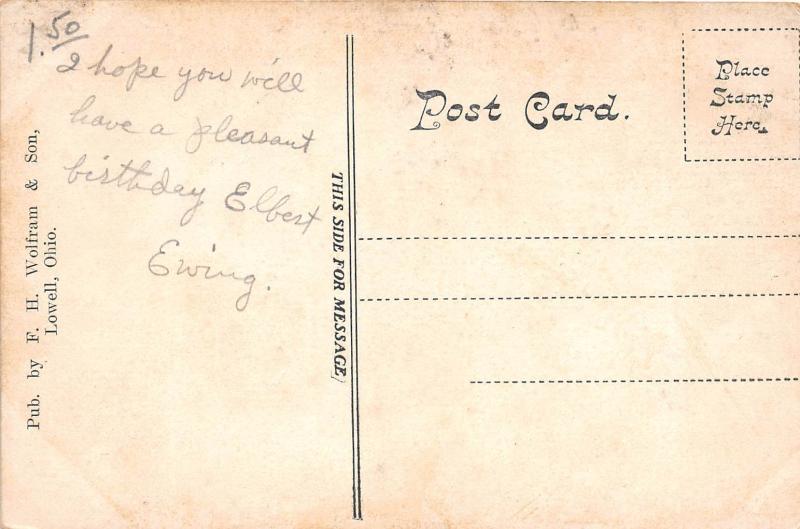 1.50
I hope you will
have a pleasant
birthday Elbert
Ewing.
Pub. by F. H. Wolfram & Son,
Lowell, Ohio.
THIS SIDE FOR MESSAGE
Post Card.
Place
Stamp
Here.